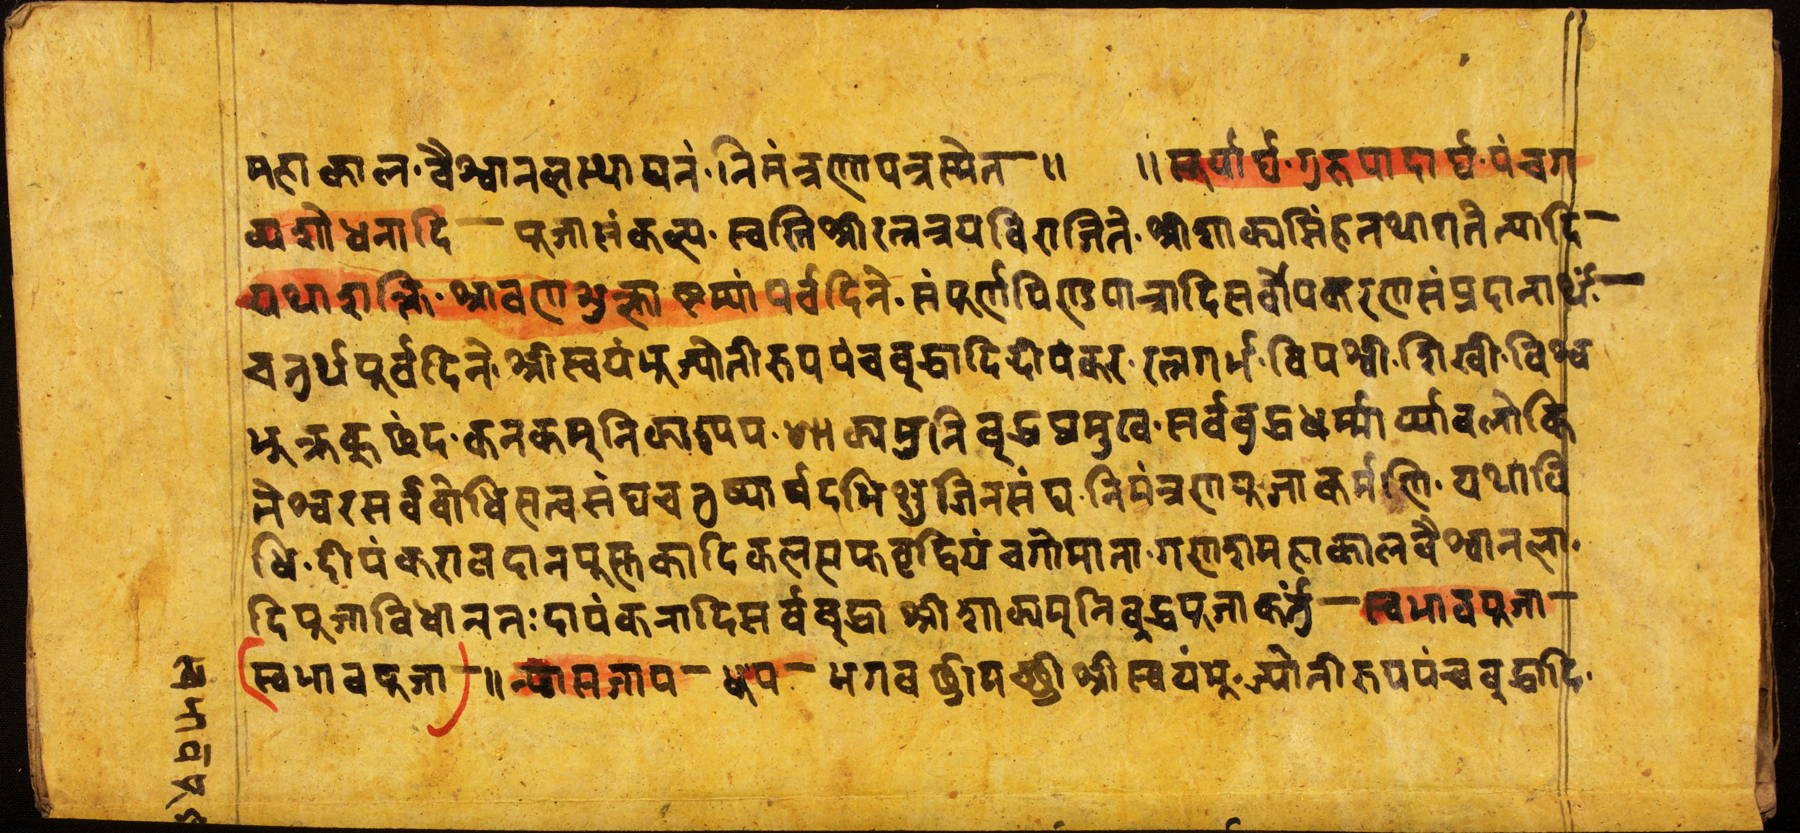 महाकाल·वैश्वानलस्थापनं·निमंन्त्रणापन्त्रस्मेन-॥ ॥सूर्पार्घ·गुरुपादार्घ·पंचग
व्यशोधनादि- पूजासंकल्प·स्वस्तिश्रीरत्नत्रयविराजिते·श्रीशाक्यसिंहतथागतेत्यादि-
यथाशक्ति·श्रावणशुक्लाष्टम्यां पर्वदिने·संपूर्णपिण्डपात्रादिसर्वोपकरणसंप्रदानार्थं-
चतुर्थपूर्वदिने·श्रीस्वयंभूज्योतीरूपपंचबुद्धादिदीपंकर·रत्नगर्भ·विपश्वी·शिखी·विश्व
भूक्रकुछंद·कनकमुनिकाश्यप·शाक्यमुनिबुद्धप्रमुख·सर्वबुद्धधर्म्मार्य्यावलोकि
तेश्वरसर्वबोधिसत्वसंघचतुष्पार्षदभिक्षुजिनसंघ·निमंन्त्रणापूजाकर्मणि·यथावि
धि·दीपंकरालदानपुस्तकादिकलस पंचगोमाता·गणेशमहाकालवैश्वानला·
दिपूजाविधाननः दीपंकरादिसर्वबुद्धा श्रीशाक्यमुनिबुद्धपूजाकर्तुं-स्वभावपूजा-
(स्वभावपूजा)-॥न्यासजाप-धूप-भगवन् श्रीश्रीश्रीस्वयंभू·ज्योतीरूपपंचबुद्धादि·